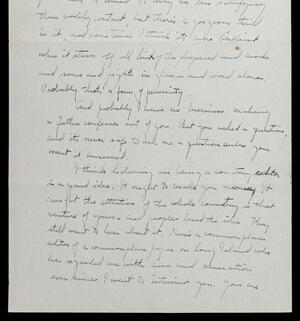 than bodily contact, but there's a gorgeous thrill
in it, and sometimes I think it's more brilliant
when it staves off all of the physical and works
and soars and fights in glance and word alone.
Probably that's a form of
And probably I have no business making
a father confessor out of you. But you asked a question,
and it's never safe to ask me a question unless you
want it answered.
I think lecturing on being a country editor
is a grand idea. It ought to make you money. It
caught the attention of the whole country, that
venture of yours, and people loved the idea. They
still want to hear about it. There's a commonplace
editor of a commonplace paper on Long Island who
has regarded me with awe and veneration
ever since I went to interview you. You are